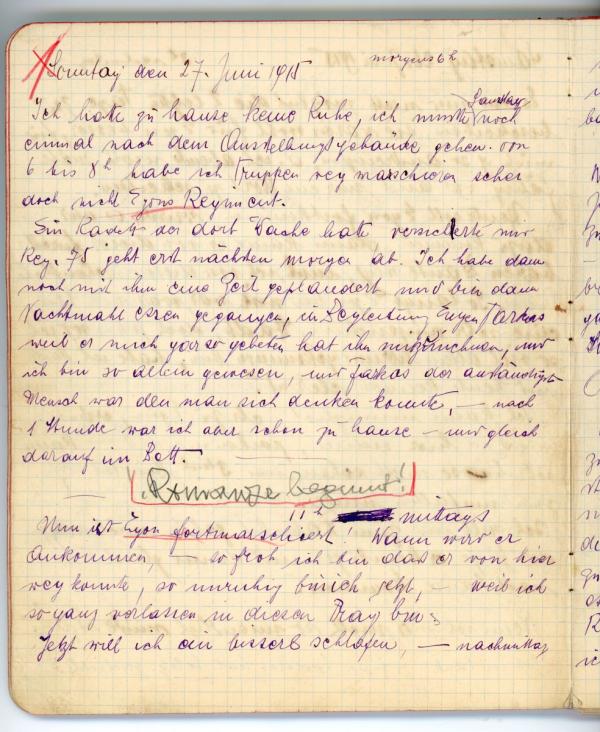 morgens 6h
Sonntag den 27. Juni 1915
Samstag
Ich hatte zu hause keine Ruhe, ich musste noch
einmal nach dem Ausstellungsgebäude gehen. von
6 bis 8h habe ich Truppen weg marschieren sehen
doch nicht Egons Regiment.
Ein Kadett der dort Wache hatte versicherte mir
Reg. 75 geht erst nächsten morgen ab. Ich habe dann
noch mit ihm eine Zeit geplaudert und bin dann
Nachtmahl essen gegangen, in Begleitung Eugen Farkas
weil er mich gar so gebeten hat ihn mitzunehmen, und
ich bin so allein gewesen, und Farkas der anständigste
Mensch war den man sich denken konnte, – nach
1 Stunde war ich aber schon zu hause – und gleich
darauf im Bett.
"Romanze beginnt!
11h mittags
Nun ist Egon fortmarschiert! Wann wird er
ankommen, – so froh ich bin das er von hier
weg konnte, so unruhig bin ich jetzt, – weil ich
so ganz verlassen in diesen Prag bin.
Jetzt will ich ein bisserl schlafen, – nachmittag